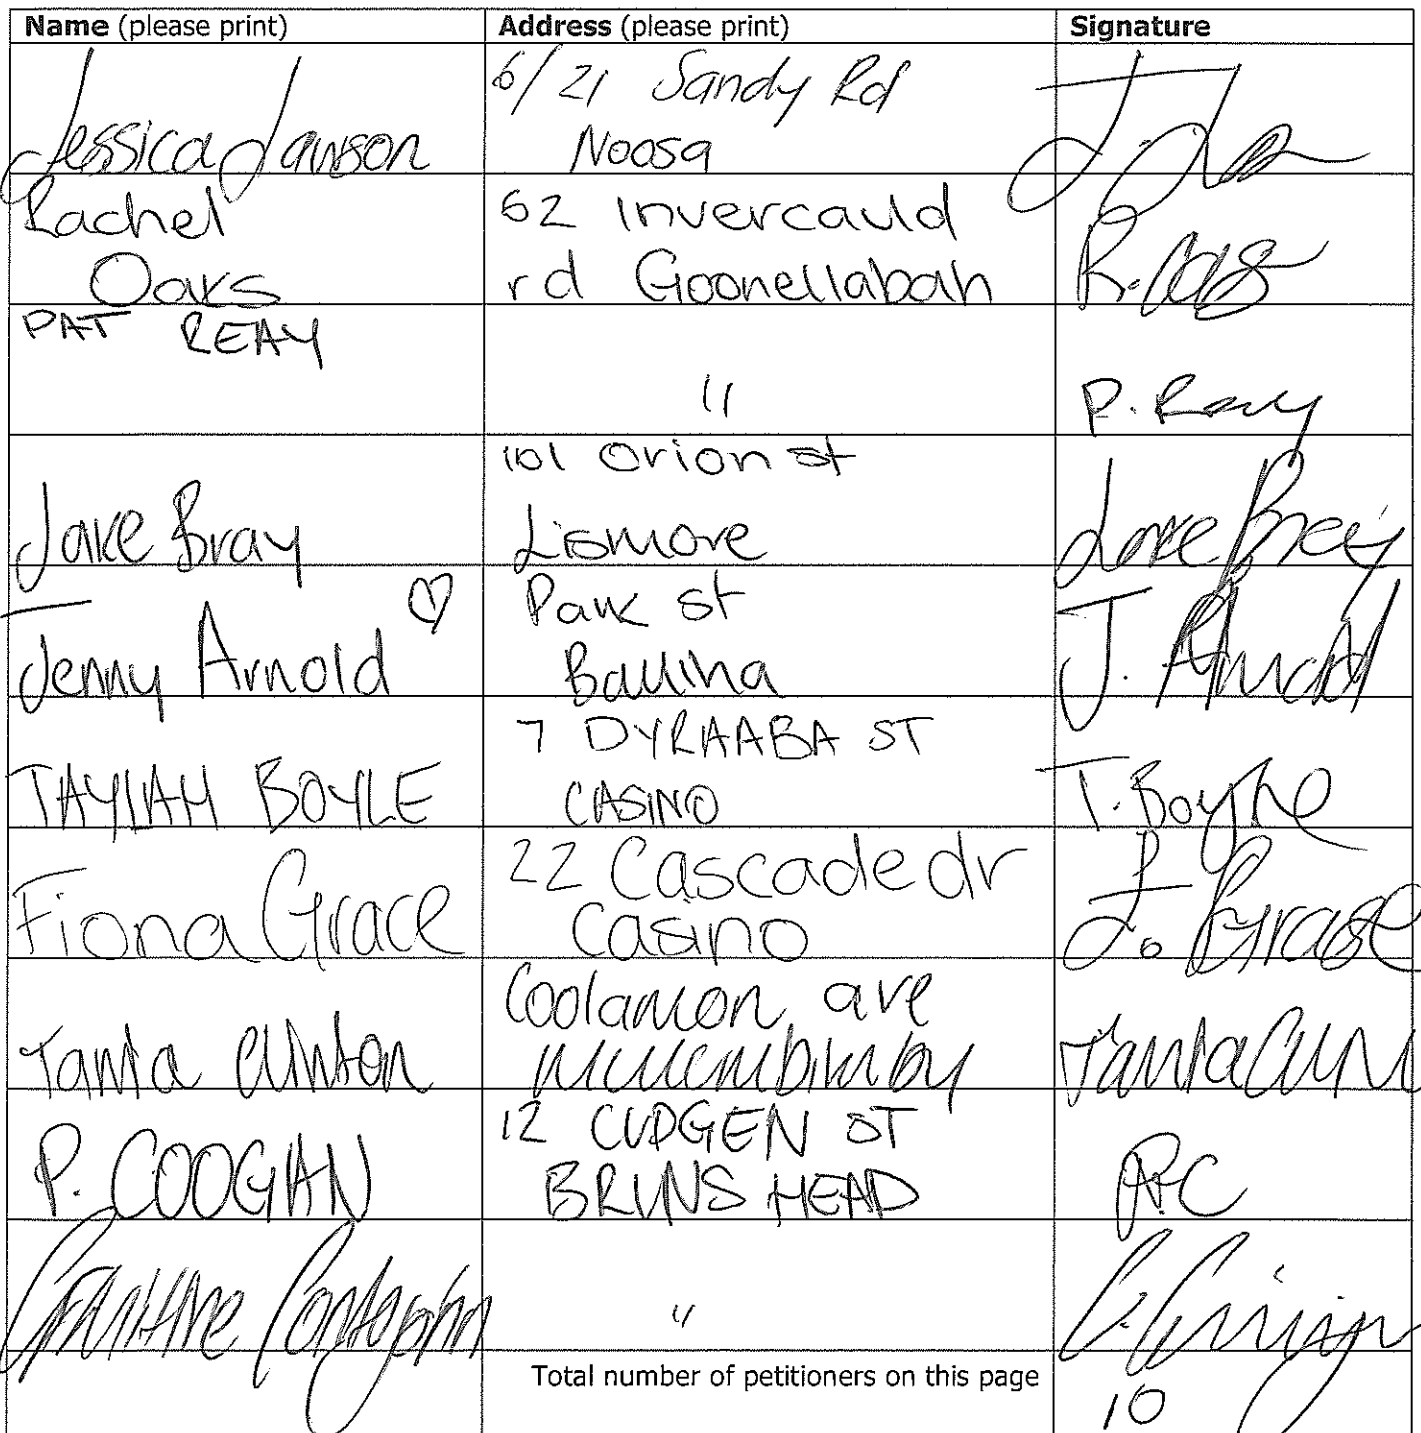 Name (please print) Address (please print) Signature
Jessica Lawson
6/21 Sandy Rd
Noosa
Rachel
Oaks
62 Invercauld
rd Goonellabah
R. Oaks
PAT REAY
"
P. Reay
Jake Bray
101 Orion st
Lismore
Jake Bray
Jenny Arnold ♡
Park st
Ballina
J. Arnold
TAYLAH BOYLE
7 DYRAABA ST
CASINO
T. Boyle
Fiona Grace
22 Cascade dr
Casino
F. Grace
Tania Clinton
Coolamon ave
Mullumbimby
Tania
P. COOGAN
12 CUDGEN ST
BRUNS HEAD
P.C
"
Total number of petitioners on this page
10